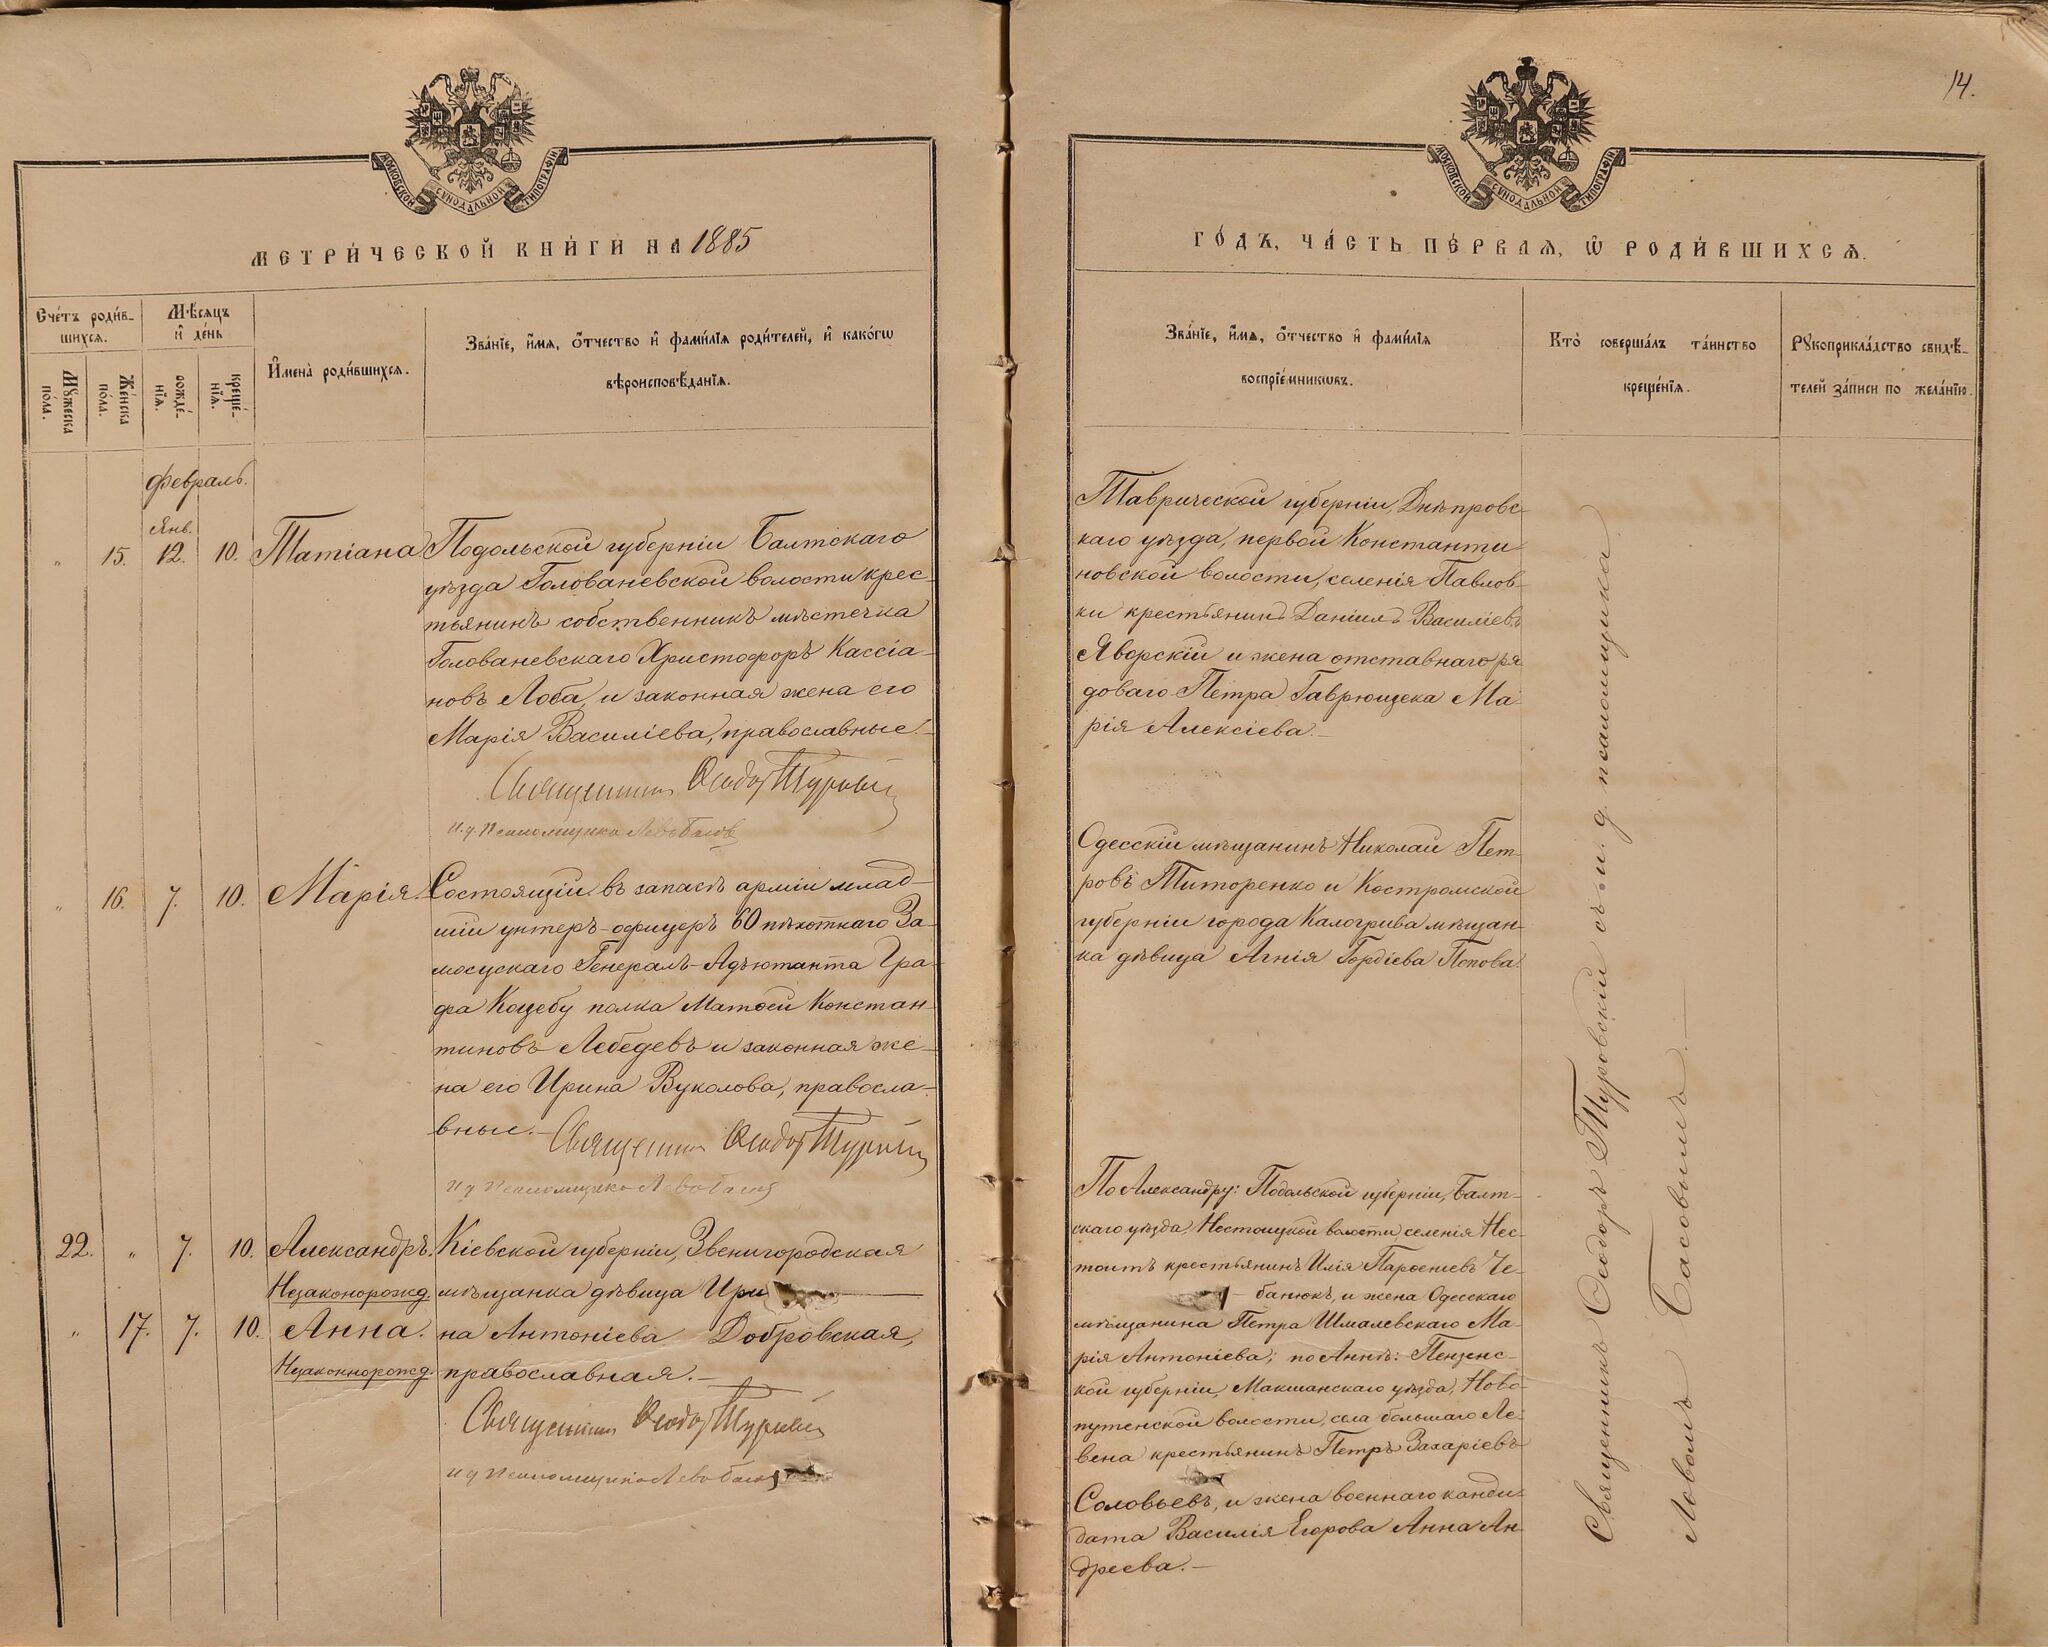 14.
МОСКОВСКОЙ СѴНОДАЛЬНОЙ ТИПОГРАФІИ
МОСКОВСКОЙ СѴНОДАЛЬНОЙ ТИПОГРАФІИ
МЕТРИ́ЧЕСКОЙ КНИ́ГИ НА 1885
ГО́ДЪ, ЧА́СТЬ ПЕ́РВАѦ, Ѿ РОДИ́ВШИХСѦ.
Сче́тъ роди́в-
шихсѧ.
Мꙋ́жеска
по́ла.
Же́нска
по́ла.
Мѣ́сѧцъ
и҆ де́нь
рожде́-
нїѧ.
креще́-
нїѧ.
И҆мена̀ роди́вшихсѧ.
Зва́нїе, и҆́мѧ, ѻ҆́тчество и҆ фами́лїѧ роди́телей, и҆ како́гѡ
вѣроисповѣ́данїѧ.
Зва́нїе, и҆́мѧ, ѻ҆́тчество и҆ фами́лїѧ
воспрїе́мникѡвъ.
Кто̀ соверша́лъ та́инство
креще́нїѧ.
Рꙋкоприкла́дство свидѣ́-
телей за́писи по жела́нїю.
Февраль.
Янв.
" 15. 12. 10. Татіана
Подольской губерніи Балтскаго
уѣзда Голованевской волости крес-
тьянинъ собственникъ мѣстечка
Голованевскаго Христофоръ Кассіа-
новъ Лоба, и законная жена его
Марія Василіева, православные.-
Священникъ Ѳеодоръ Туровскій
И.д. Псаломщика Левъ Басовъ
Таврической губерніи, Днѣпровс-
каго уѣзда, первой Константи
новской волости, селенія Павлов-
ки крестьянинъ Даніилъ Василіевъ
Яворскій и жена отставнаго ря
доваго Петра Гаврющека Ма-
рія Алексіева.-
" 16. 7. 10. Марія.
Состоящій въ запасѣ арміи млад-
шій унтеръ-офицеръ 60 пѣхотнаго За-
мосцскаго Генералъ-Адъютанта Гра-
фа Коцебу полка Матѳей Констан-
тиновъ Лебедевъ и законная же-
на его Ирина Вуколова, правосла-
вные.-
Священникъ Ѳеодоръ Туровскій
И д Псаломщика Левъ Басовъ
Одесскій мѣщанинъ Николай Пет-
ровъ Титоренко и Костромской
губерніи города Калогрива мѣщан-
ка дѣвица Агнія Гордіева Попова.
22. " 7. 10. Александръ.
Незаконорожд
" 17. 7. 10. Анна.
Незаконнорожд.
Кіевской губерніи, Звенигородская
мѣщанка дѣвица Ири
на Антоніева Добровская,
православная.-
Священникъ Ѳеодоръ Туровскій
И д Псаломщика Левъ Басовъ
По Александру: Подольской губерніи, Балт-
скаго уѣзда, Нестоицкой волости, селенія Нес-
тоитъ крестьянинъ Илія Парѳеніевъ Че-
- банюкъ, и жена Одесскаго
мѣщанина Петра Шмалевскаго Ма-
рія Антоніева; по Аннѣ: Пензенс-
кой губерніи, Макшанскаго уѣзда, Ново-
волости, села большаго Ле-
вена крестьянинъ Петръ Захаріевъ
Соловьевъ, и жена военнаго канди-
дата Василія Егорова Анна Ан-
дреева.-
Священникъ Ѳеодоръ Туровскій съ и. д. псаломщика
Львомъ Басовымъ.-